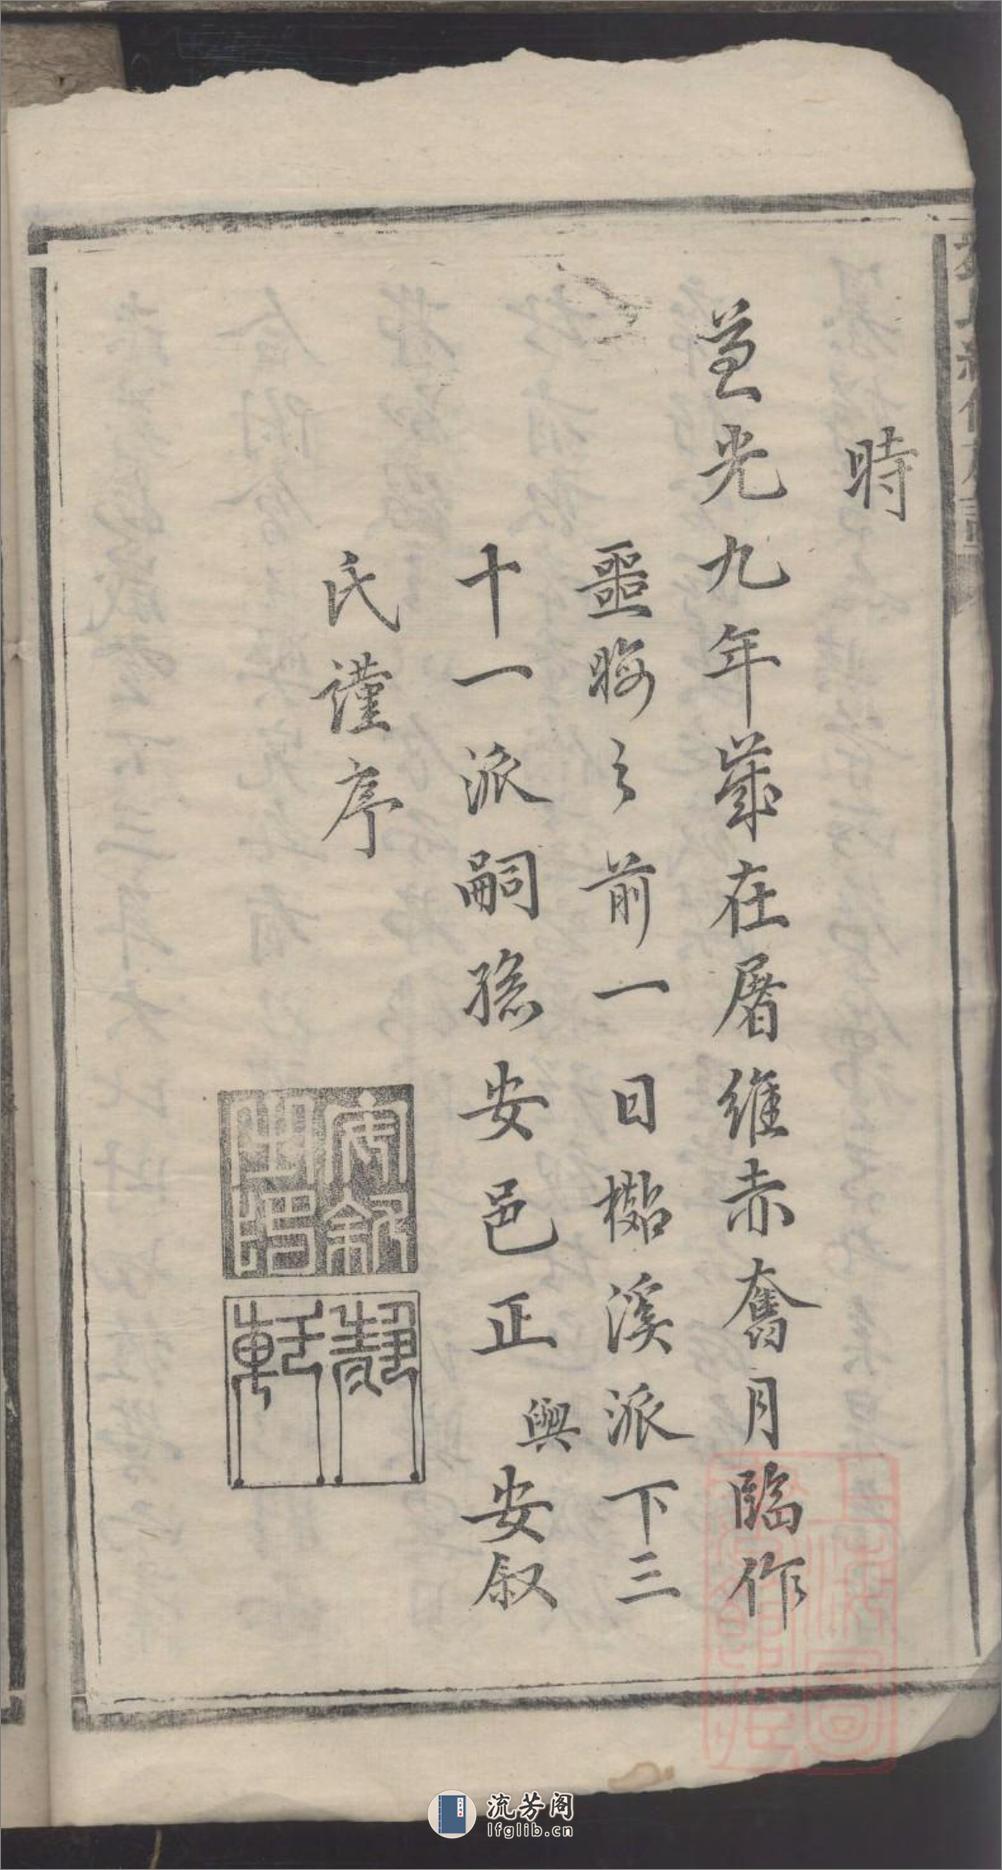 時
道光九年歲在屠維赤奮月臨作
噩晦之前一日櫤溪派下三
十一派嗣孫安邑正與安叙
氏謹序
安叙
出印
靜
軒
流芳阁
lfglib.cn